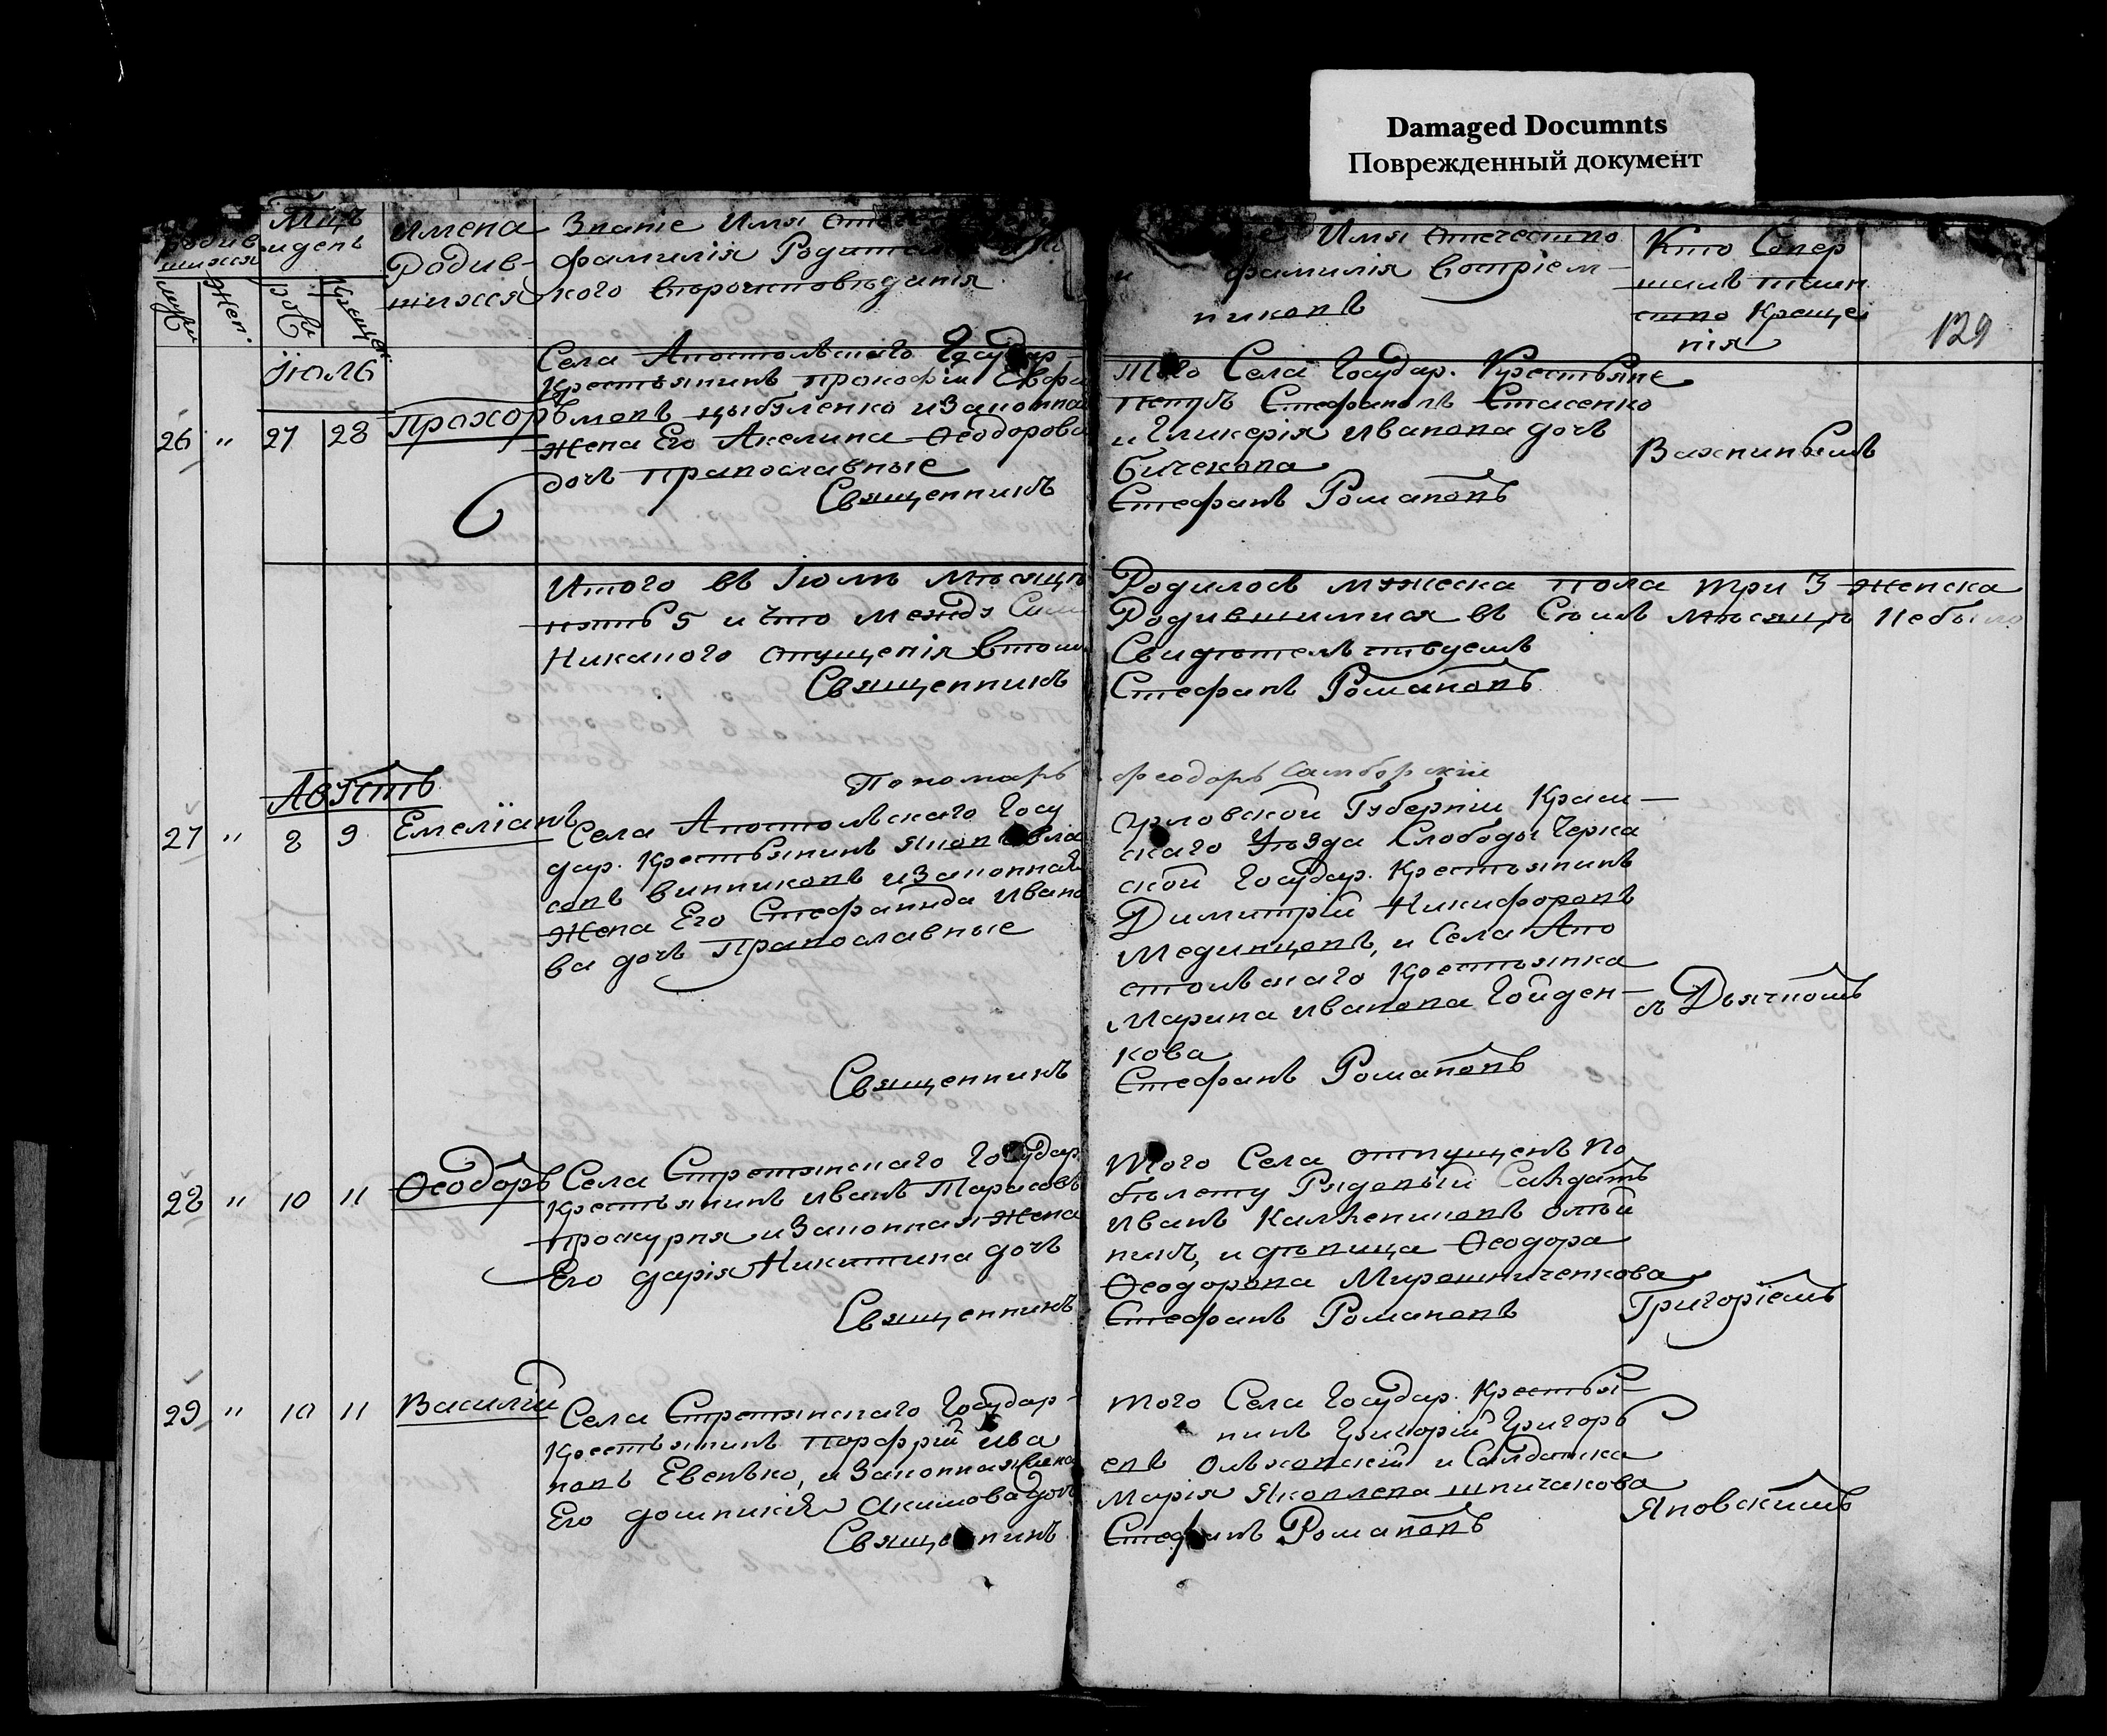 Damaged Documnts
Поврежденный документ
129
родив
шихся
Мцъ
и день
муж
жен.
рож
крещен
Имена
Родив-
шихся
Званіе Имя Отче
фамилія Родите
кого Вѣроисповѣданія
и
Имя Отчество
фамилія Воспріем-
никовъ
Кто Совер
шалъ таин
ство Креще
нія
Іюль
26 " 27 28 Прохоръ
Села Апостольскаго Государ-
Крестьянинъ Прокофій Евфи
мовъ Цыбуленко и Законная
жена Его Акелина Ѳеодорова
дочь Православные
Священникъ
Того Села Государ. Крестьяне
Стефановъ Стасенко
и Гликерія Иванова дочь
Бичекова
Стефанъ Романовъ
Итого въ Іюлѣ Мѣсяцѣ
пять 5 и что между Сим
Никакого опущенія Втом
Священникъ
Родилось мужеска пола три 3 женска
Родившимися въ Сіомъ мѣсяцѣ небыло
Свидѣтельствуемъ
Стефанъ Романовъ
Пономарь
Ѳеодоръ Самборскій
Августъ
27 " 8 9 Емеліанъ
Села Апостольскаго Госу
дар. Крестьянинъ Яковъ Вла
совъ Винниковъ и Законная
Жена Его Стефанида Ивано
ва дочь Православные
Священникъ
Орловской Губерніи Кром-
скаго Уѣзда Слободы Черка
ской Государ. Крестьянинъ
Димитрій Никифоровъ
Мединцовъ, и Села Апо
стольскаго Крестьянка
Марина Иванова Гойден-
кова
Стефанъ Романовъ
съ Дьячкомъ
28 " 10 11 Ѳеодоръ
Села Стретинскаго Государ
Крестьянинъ Иванъ Тарасовъ
Проскурня и Законная Жена
Его Дарія Никитина дочь
Священникъ
Того Села отпущенъ По
билету Рядовый Салдатъ
Иванъ
никъ, и дѣвица Ѳеодора
Ѳеодорова Мирошниченкова
Стефанъ Романовъ
Григоріемъ
29 " 10 11 Василій
Села Стретинскаго Государ-
Крестьянинъ Порфрій Ива
новъ Евенько, и Законная Жена
Его Домникія Акимова дочь
Священникъ
Того Села Государ. Крестья-
нинъ Григорій Григорь
евъ Ольховскій и Салдатка
Марія Яковлева Шпичакова
Стефанъ Романовъ
Яновскимъ